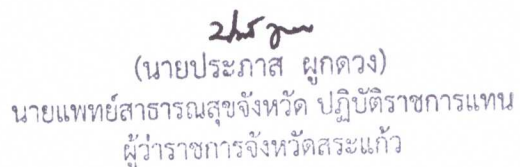 (นายประภาส ผูกดวง)
นายแพทย์สาธารณสุขจังหวัด ปฏิบัติราชการแทน
ผู้ว่าราชการจังหวัดสระแก้ว